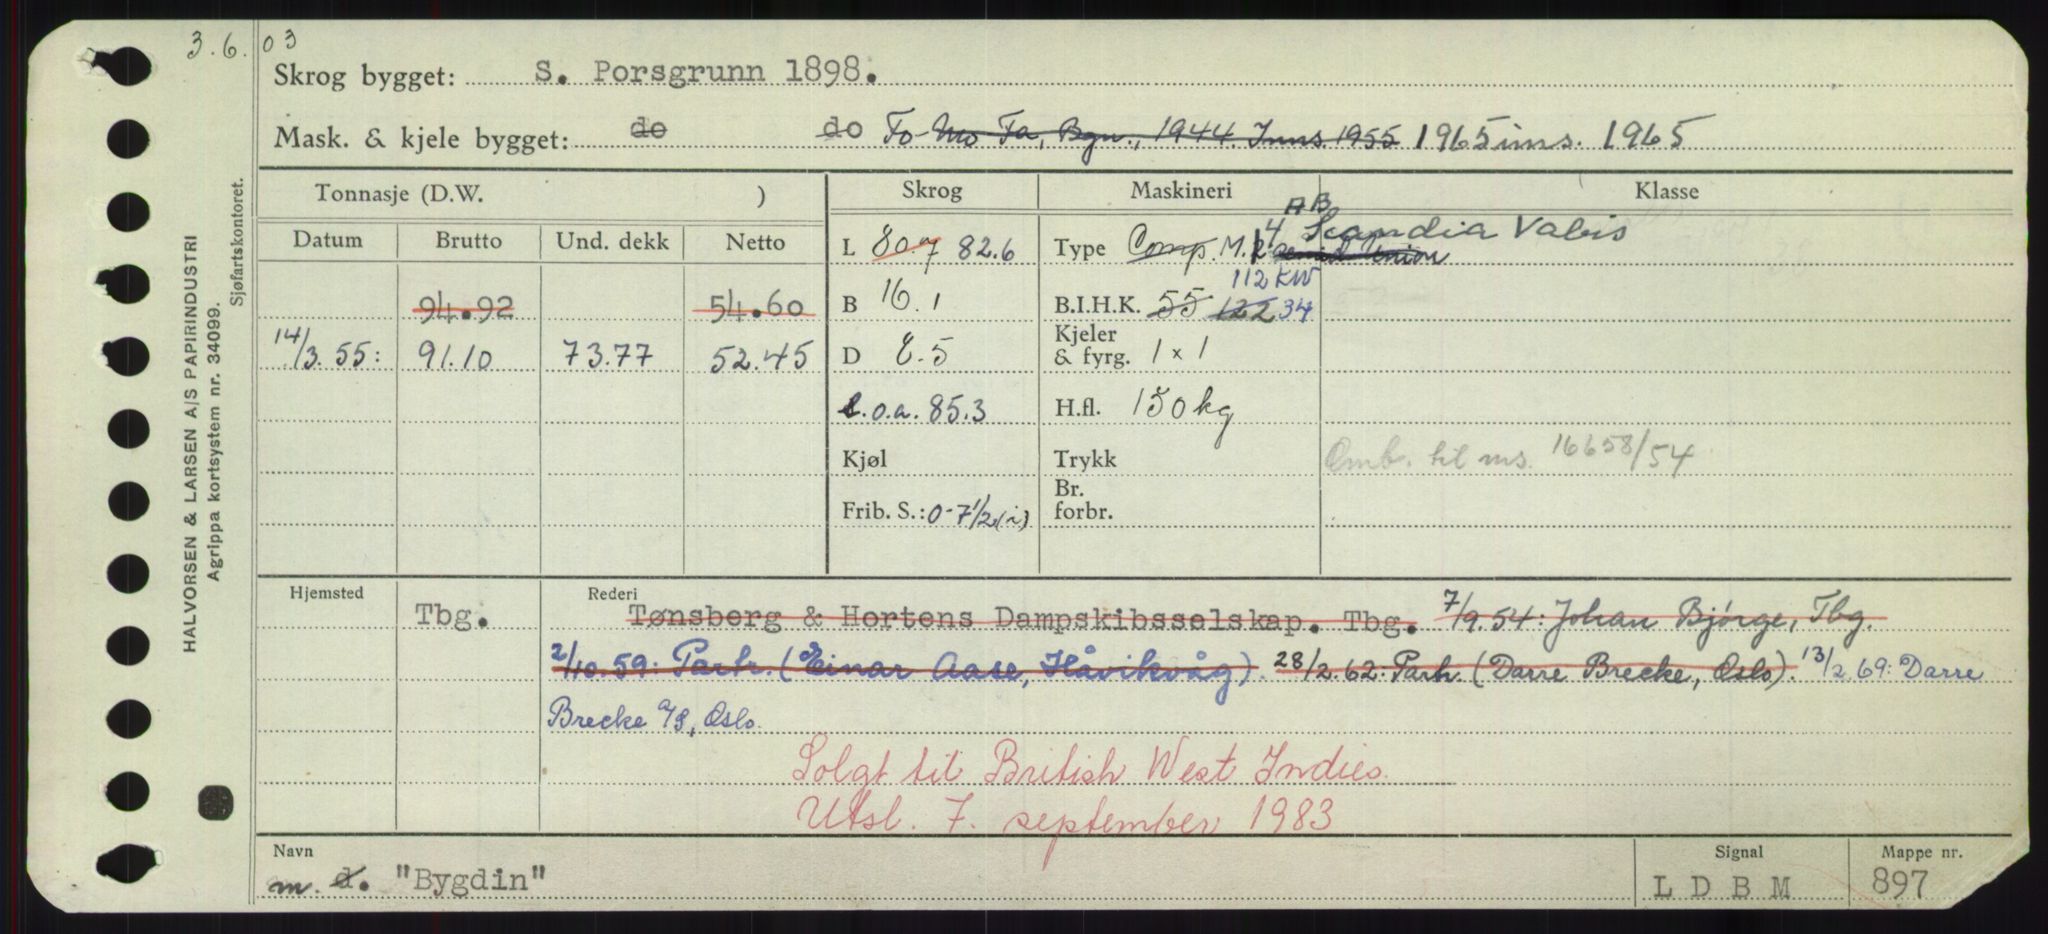 3.6.03
Skrog bygget: S. Porsgrunn 1898.
Mask. & kjele bygget: do do Fo-Mo Fa, Bgn., 1944. Inns. 1955 1965 ins. 1965
Tonnasje (D.W. ) Skrog Maskineri Klasse
Datum Brutto Und. dekk Netto
L 80.7 82.6 Type Comp. M. 4 AB Scandia Vabis
94.92 54.60 B 16.1 B.I.H.K. 55 122 34 112 KW
14/3.55: 91.10 73.77 52.45 D 8.5 Kjeler & fyrg. 1 x 1
L.o.a. 85.3 H.fl. 150 kg
Kjøl Trykk Omb. til ms. 16658/54
Frib. S.: 0-7 1/2 (i) Br. forbr.
Hjemsted Tbg. Rederi Tønsberg & Hortens Dampskibsselskap. Tbg. 7/9.54: Johan Bjørge, Tbg.
2/10.59: Partr. (Einar Aase, Håvikvåg). 28/2.62: Partr. (Darre Brecke, Oslo). 13/2.69: Darre
Brecke A/S, Oslo.
Solgt til British West Indies.
Utsl. 7. september 1983
Navn Signal Mappe nr.
m. d. "Bygdin" L D B M 897
HALVORSEN & LARSEN A/S PAPIRINDUSTRI
Agrippa kortsystem nr. 34099.
Sjøfartskontoret.